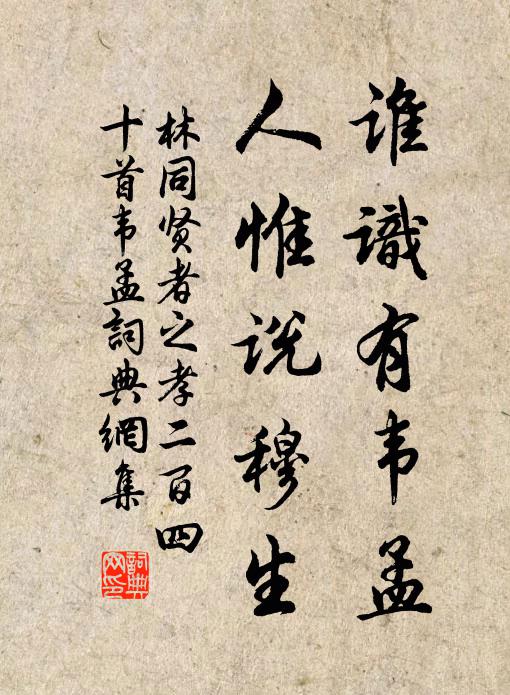 谁識有韦孟
人惟説穆生
林同贤者之孝二百四
十首韦孟詞典網集
詞典
网印